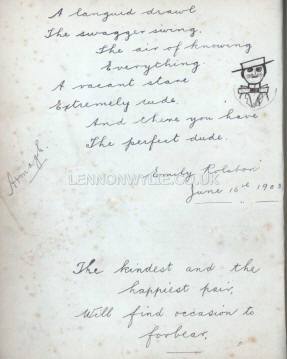 A languid drawl
The swagger swing.
The air of knowing
Everything
A vacant stare
Extremely rude.
And there you have
The perfect dude.
Armagh.
LENNONWYLIE.CO.UK
Emily Rolston
June 16th 1903
The kindest and the
happiest pair,
Will find occasion to
forbear.